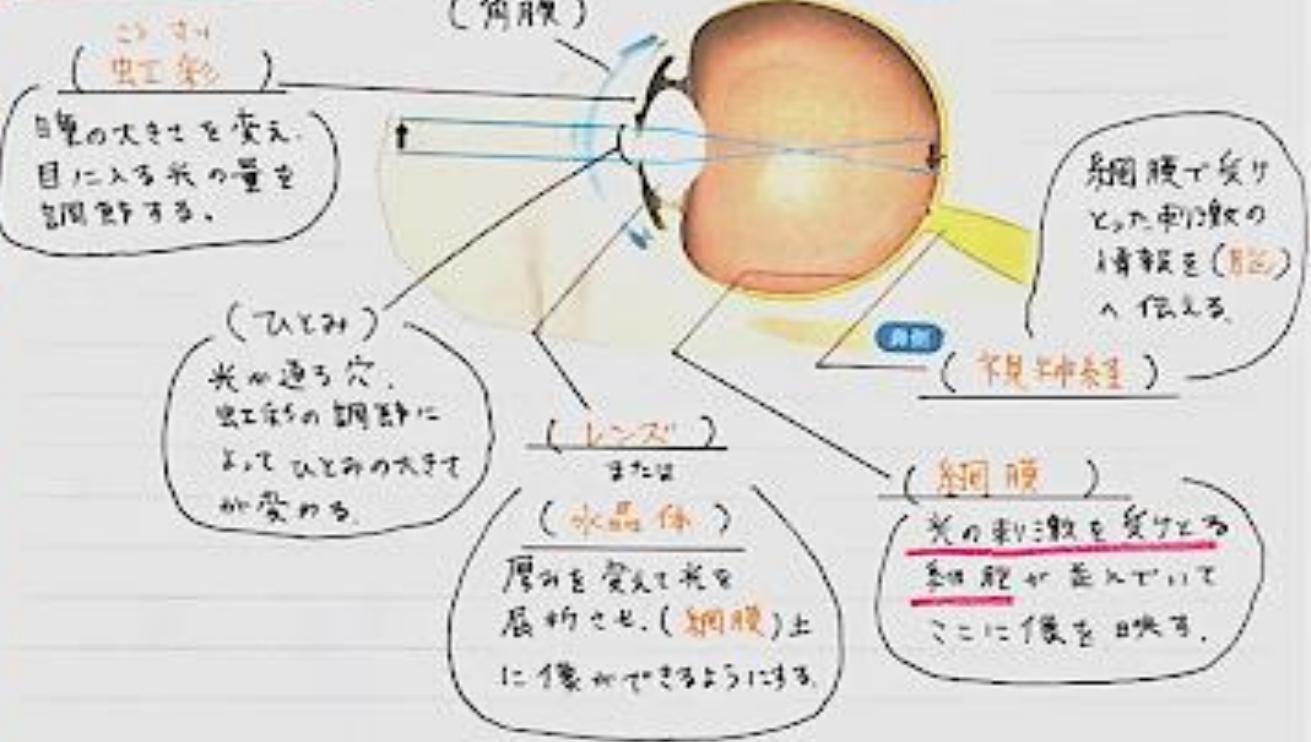 (角膜)
こう さい
(虹彩)
自らの大きさを変え、
目に入る光の量を
調節する。
(ひとみ)
光が通る穴。
虹彩の調節に
よってひとみの大きさ
が変わる。
(レンズ)
または
(水晶体)
厚みを変えて光を
屈折させ、(網膜)上
に像ができるようにする。
(網膜)
光の刺激を受けとる
細胞が並んでいて
ここに像を映す。
(視神経)
網膜で受け
とった刺激の
情報を(脳)
へ伝える。
鼻側